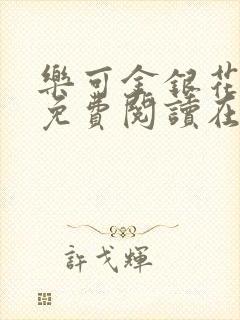 樂可金銀花
免費閱讀在
許戈輝